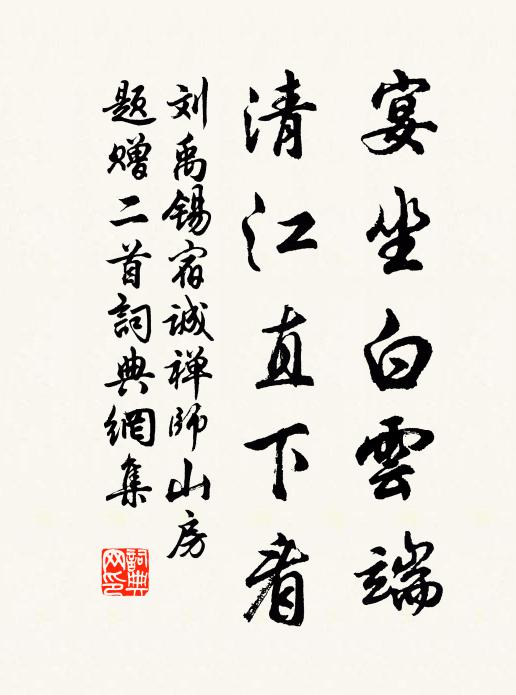 宴坐白雲端
清江直下看
刘禹锡宿诚禅师山房
题赠二首詞典網集
詞典网印